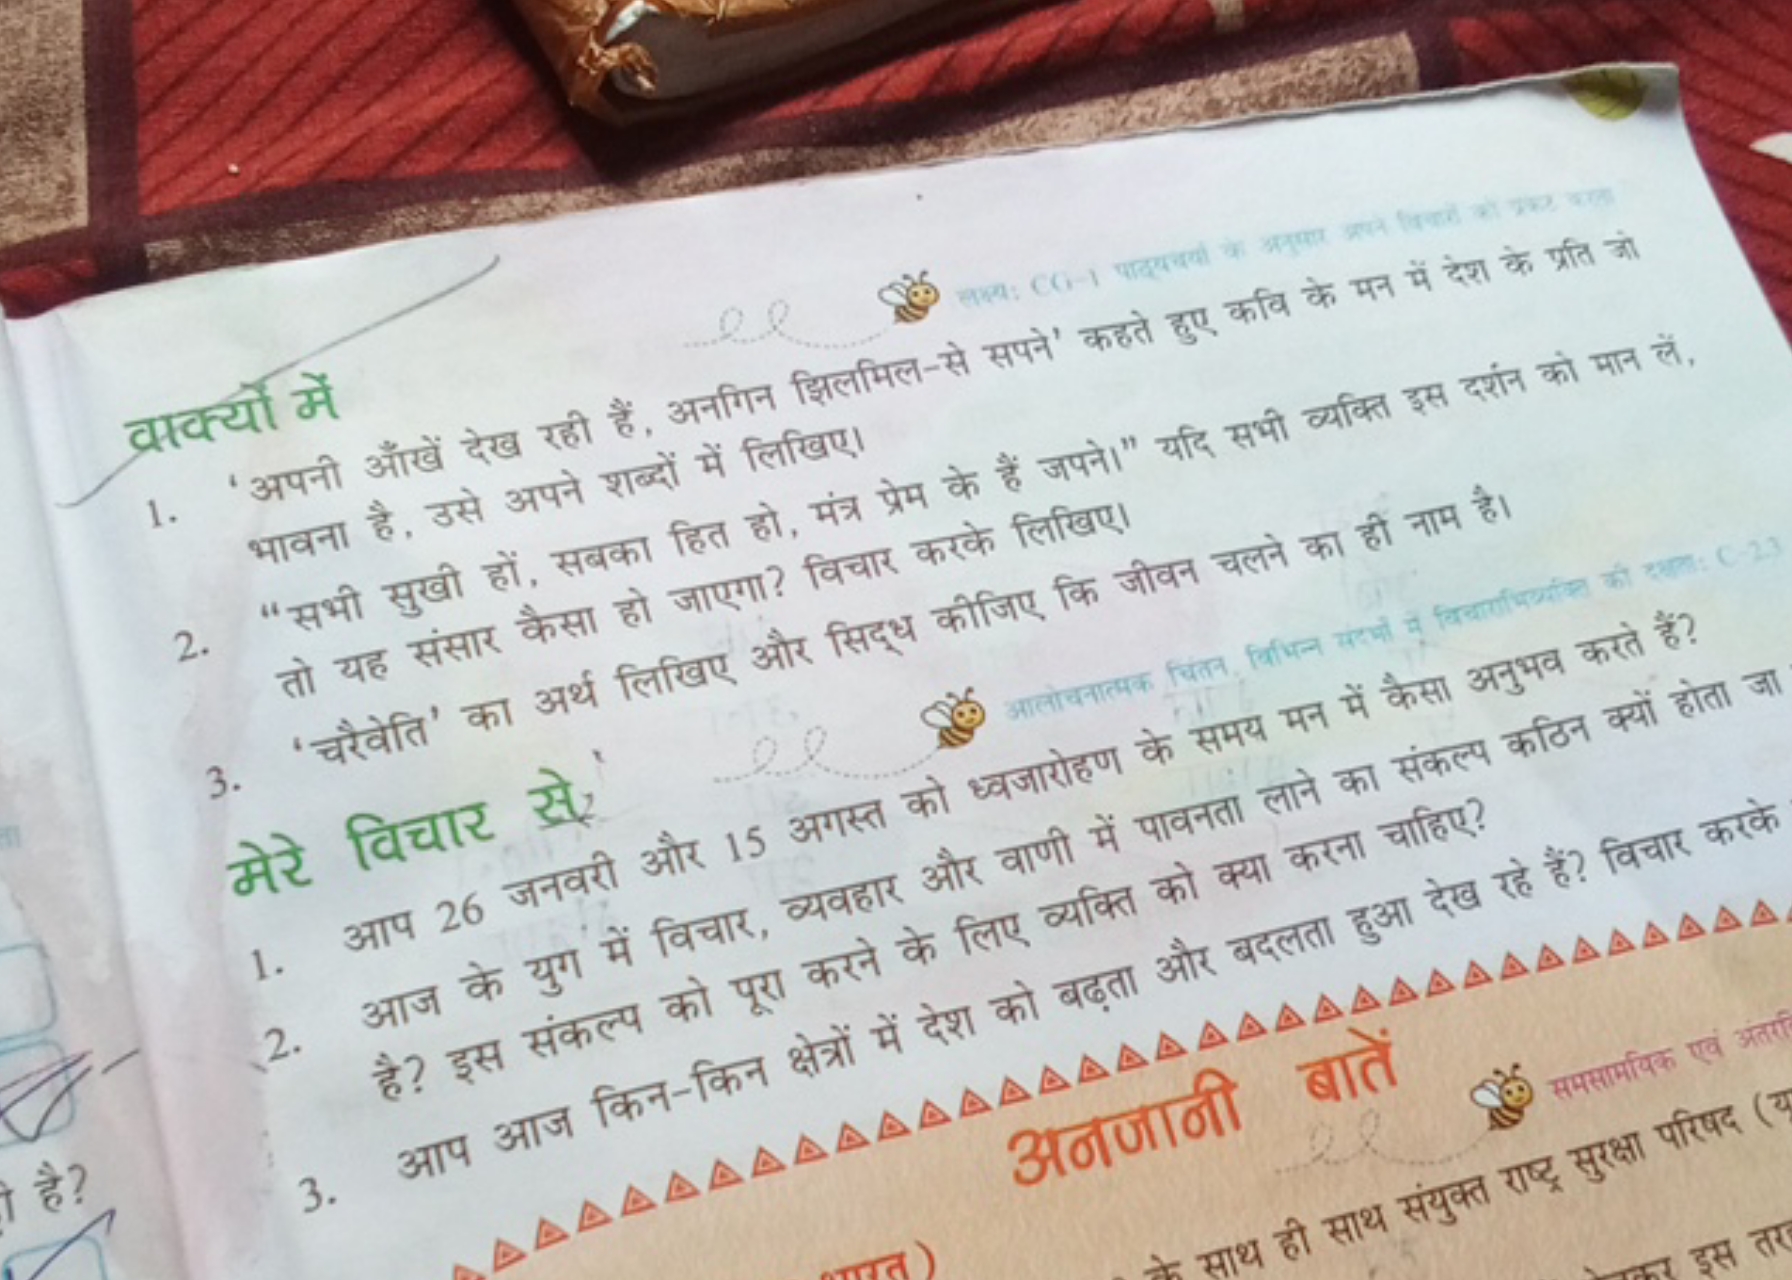 लक्ष्य: CG-1 पाठ्यचर्या के अनुसार अपने विचारों को प्रकट करना
वाक्यों में
1. 'अपनी आँखें देख रही हैं, अनगिन झिलमिल-से सपने' कहते हुए कवि के मन में देश के प्रति जो
भावना है, उसे अपने शब्दों में लिखिए।
2. “सभी सुखी हों, सबका हित हो, मंत्र प्रेम के हैं जपने।” यदि सभी व्यक्ति इस दर्शन को मान लें,
तो यह संसार कैसा हो जाएगा? विचार करके लिखिए।
3. 'चरैवेति' का अर्थ लिखिए और सिद्ध कीजिए कि जीवन चलने का ही नाम है।
आलोचनात्मक चिंतन, विभिन्न संदर्भों में विचाराभिव्यक्ति की दक्षता: C-2.3
मेरे विचार से
1. आप 26 जनवरी और 15 अगस्त को ध्वजारोहण के समय मन में कैसा अनुभव करते हैं?
2. आज के युग में विचार, व्यवहार और वाणी में पावनता लाने का संकल्प कठिन क्यों होता जा
है? इस संकल्प को पूरा करने के लिए व्यक्ति को क्या करना चाहिए?
3. आप आज किन-किन क्षेत्रों में देश को बढ़ता और बदलता हुआ देख रहे हैं? विचार करके
अनजानी बातें
समसामयिक एवं
के साथ ही साथ संयुक्त राष्ट्र सुरक्षा परिषद (
इस
है?